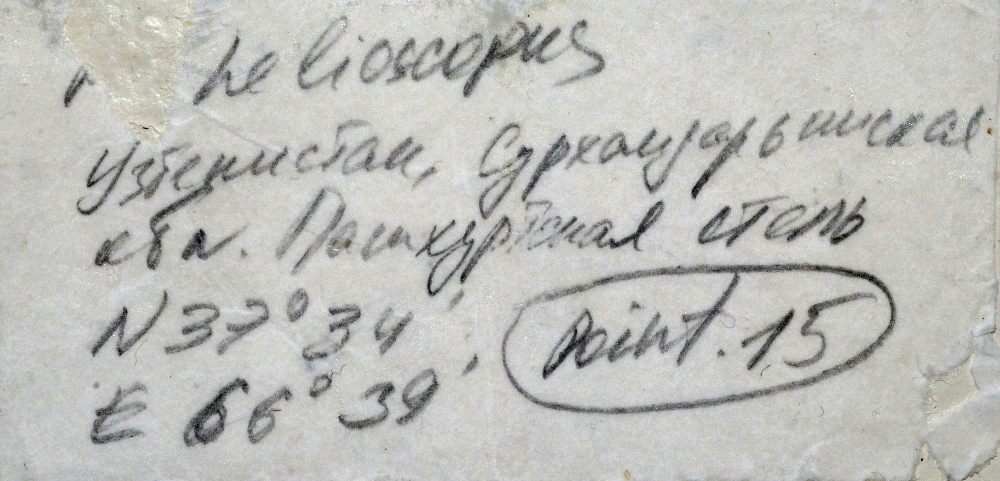 helioscopus
Узбекистан, Сурхандарьинская
обл. Пашхуртская степь
N 37° 34'
E 66° 39'
point. 15